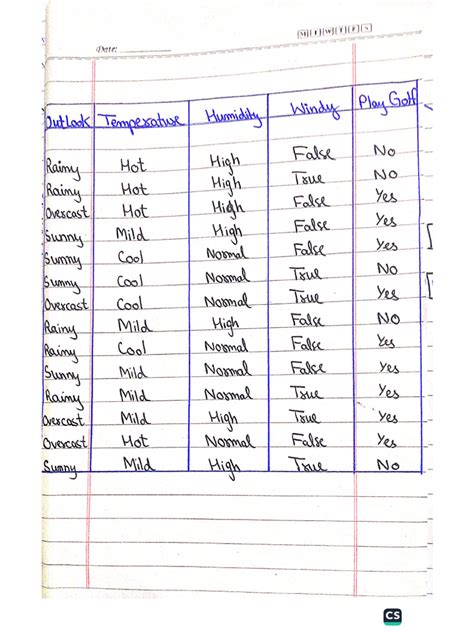 M T W T F S
Date:
Outlook Temperature Humidity Windy Play Golf
Rainy Hot High False No
Rainy Hot High True No
Overcast Hot High False Yes
Sunny Mild High False Yes
Sunny Cool Normal False Yes
Sunny Cool Normal True No
Overcast Cool Normal True Yes
Rainy Mild High False No
Rainy Cool Normal False Yes
Sunny Mild Normal False Yes
Rainy Mild Normal True Yes
Overcast Mild High True Yes
Overcast Hot Normal False Yes
Sunny Mild High True No
CS